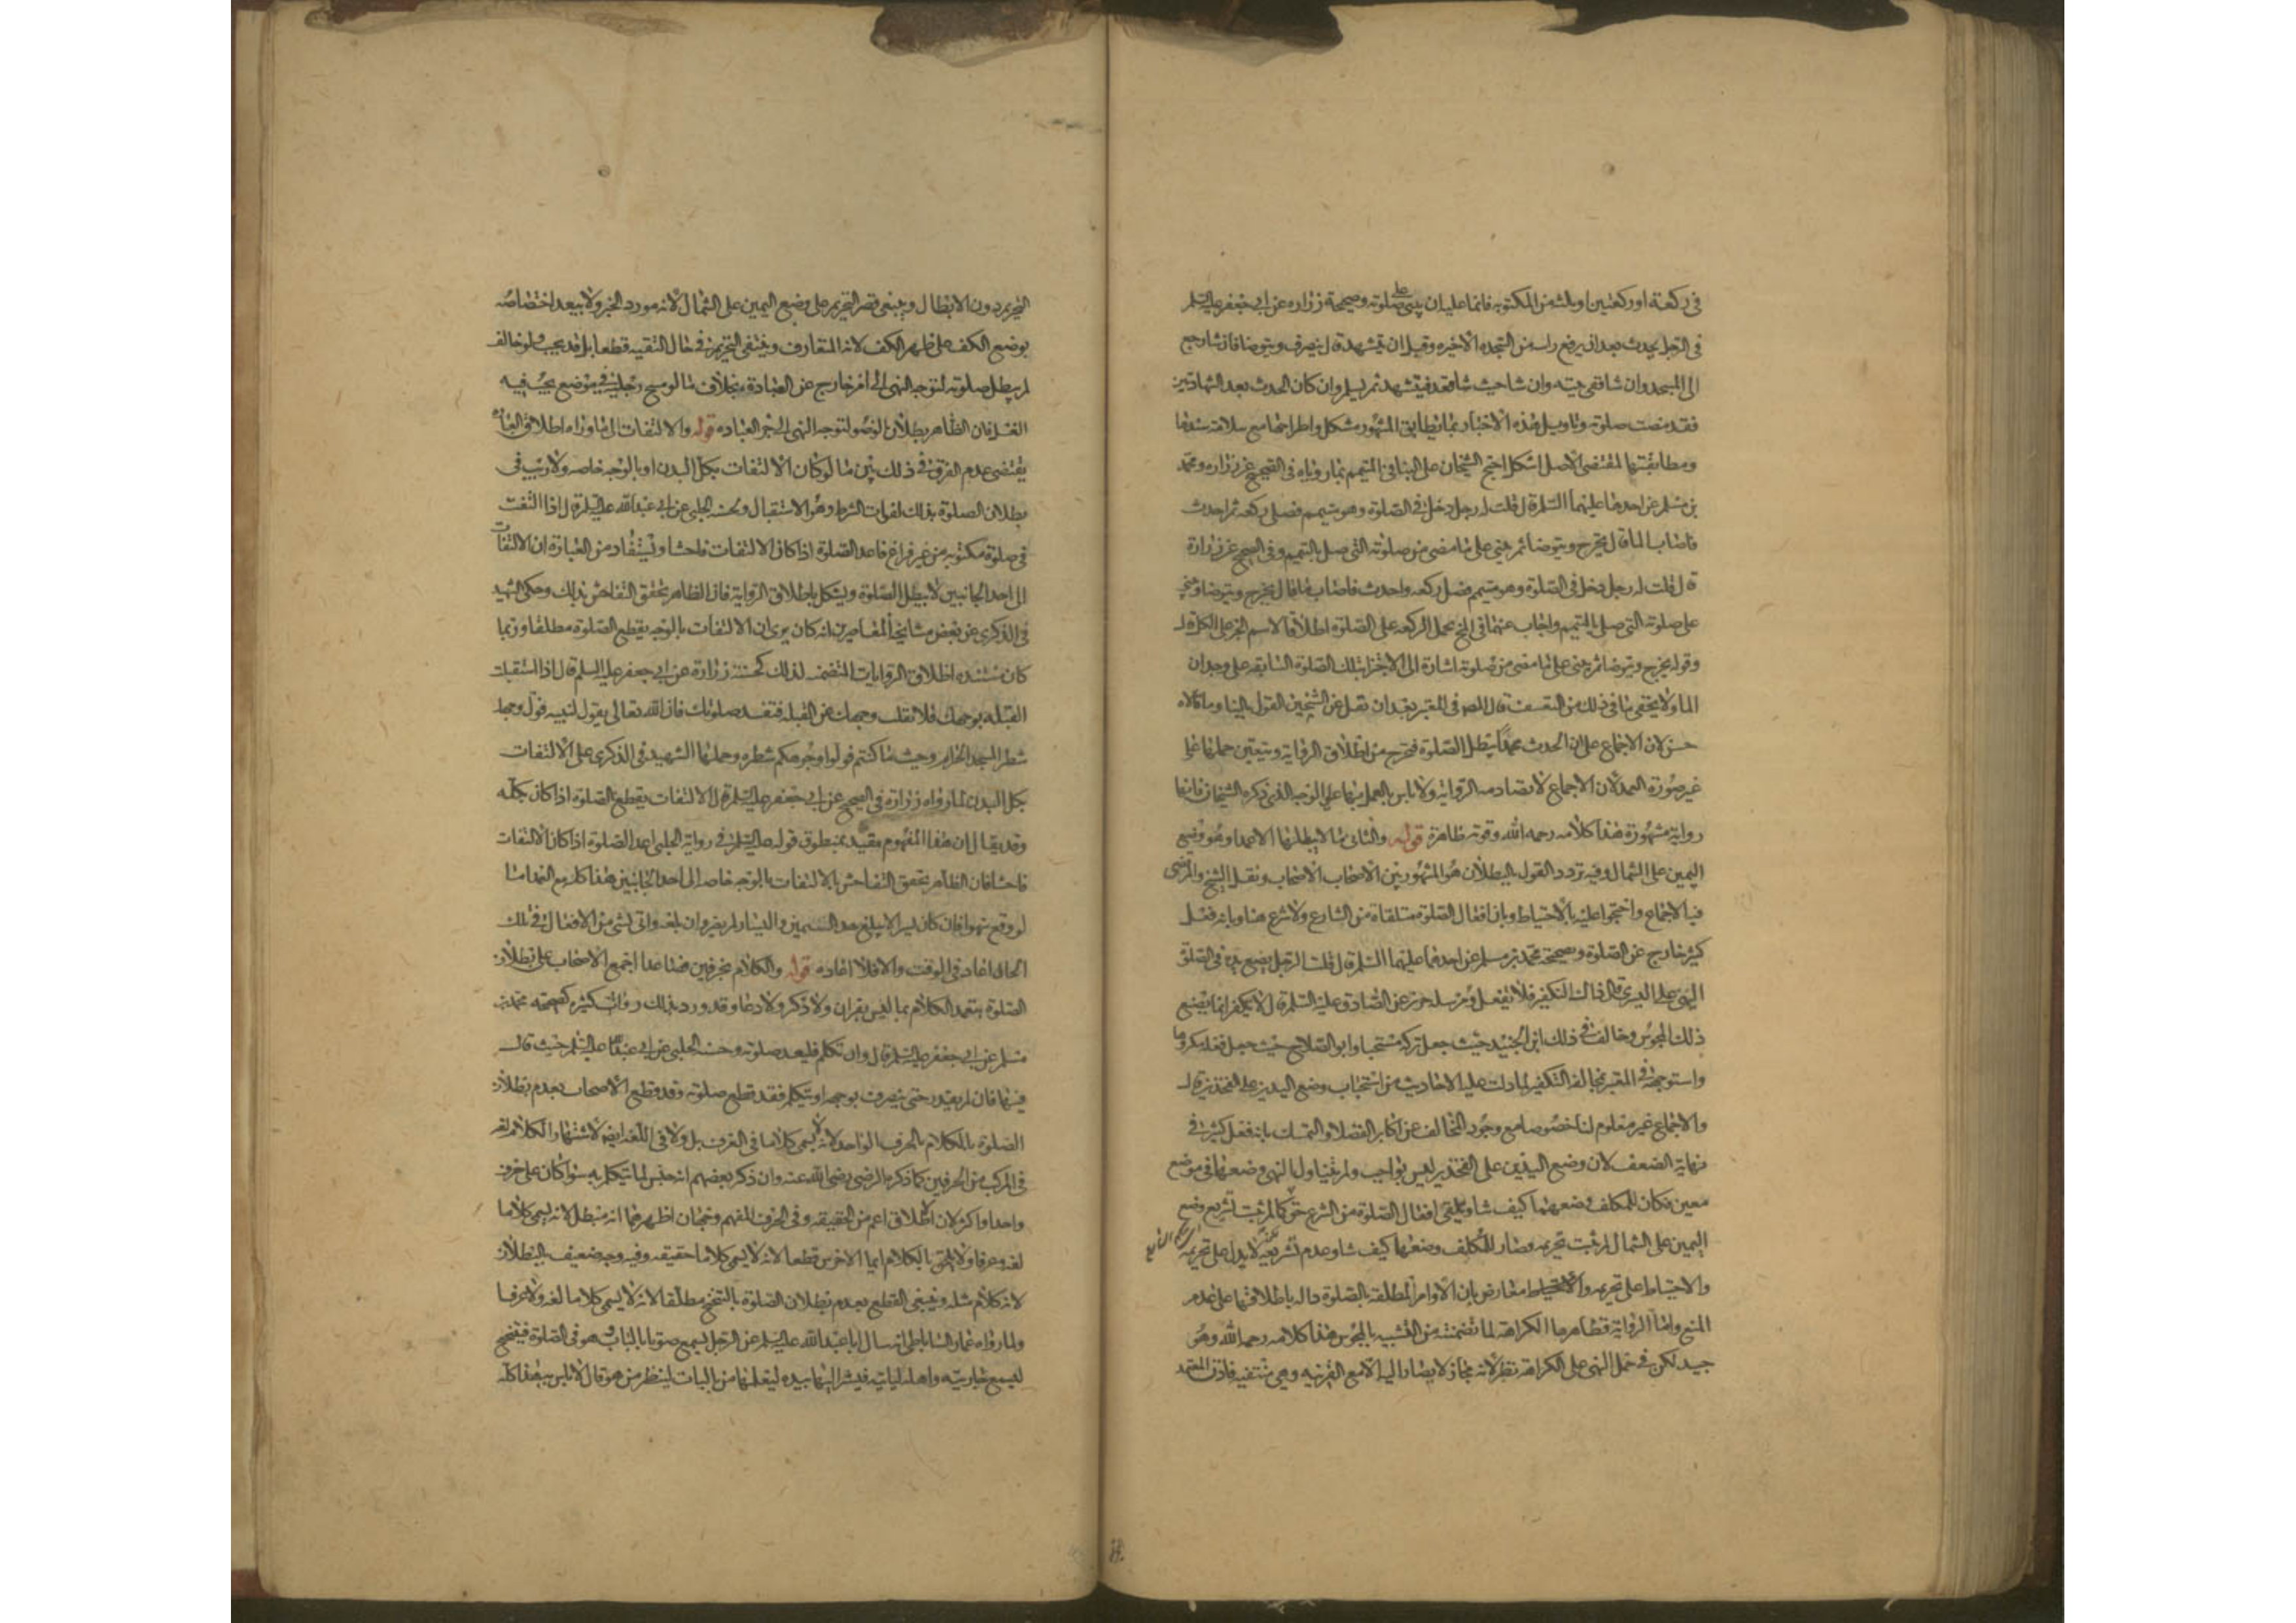 في ركعة او ركعتين او ثالثة من المكتوبة فانما عليه ان يبني على صلوته وصحيحة زرارة عن ابي جعفر عليه السلم
في الرجل يحدث بعد ان يرفع راسه من السجده الاخيره وقبل ان يتشهد قال ينصرف ويتوضا فان شا رجع
الى المسجد وان شا ففي بيته وان شا حيث شا قعد فيتشهد ثم يسلم وان كان الحدث بعد الشهادتين
فقد مضت صلوته وتاويل هذه الاخبار بما يطابق المشهور مشكل واطراحها مع سلامة سندها
ومطابقتها لمقتضى الاصل اشكل احتج الشيخان على البنا في المتيمم بما روياه في الصحيح عن زراره ومحمد
بن مسلم عن احدهما عليهما السلم قال قلت له رجل دخل في الصلوة وهو متيمم فصلى ركعه ثم احدث
فاصاب الما قال يخرج ويتوضا ثم يبني على ما مضى من صلوته التي صلى بالتيمم وفي الصحيح عن زرارة
قال قلت له رجل دخل في الصلوة وهو متيمم فصلى ركعه واحدث فاصاب ما قال يخرج ويتوضا ويبني
على صلوته التي صلى بالتيمم واجاب عنهما في المخ بحمل الركعه على الصلوة اطلاقا لاسم الجزء على الكل قال
وقوله يخرج ويتوضا ثم يبني على ما مضى من صلوته اشارة الى الاجتزا بتلك الصلوة السابقه على وجدان
الما ولا يخفى ما في ذلك من التعسف قال المص في المعتبر بعد ان نقل عن الشيخين القول بالبنا وما قالاه
حسن لان الاجماع على ان الحدث عمدا يبطل الصلوة فيخرج من اطلاق الرواية ويتعين حملها على
غير صورة العمد لان الاجماع لا تصادمه الرواية ولا باس بالعمل بها على الوجه الذي ذكره الشيخان فانها
رواية مشهورة هذا كلامه رحمه الله وقوته ظاهرة قوله والثاني ما لا يبطلها الا عمدا وهو وضع
اليمين على الشمال وفيه تردد القول بالبطلان هو المشهور بين الاصحاب ونقل الشيخ والمرتضى
فيه الاجماع واحتجوا عليه بالاحتياط وبان افعال الصلوة متلقاة من الشارع ولا شرع هنا وبانه فعل
كثير خارج عن الصلوة وصحيحة محمد بن مسلم عن احدهما عليهما السلم قال قلت الرجل يضع يده في الصلوة
اليمنى على اليسرى قال ذلك التكفير فلا تفعل ومرسلة حريز عن الصادق عليه السلم قال لا تكفر انما يصنع
ذلك المجوس وخالف في ذلك ابن الجنيد حيث جعل تركه مستحبا وابو الصلاح حيث جعل فعله مكروها
واستوجهه في المعتبر لمخالفة التكفير لما دلت عليه الاحاديث من استحباب وضع اليدين على الفخذين قال
والاجماع غير معلوم لنا خصوصا مع وجود المخالف عن اكابر الفضلا والتمسك بانه فعل كثير في
نهاية الضعف لان وضع اليدين على الفخذين ليس بواجب ولم يتناول النهي وضعهما في موضع
معين فكان للمكلف وضعهما كيف شا وتلقي افعال الصلوة من الشرع حق كما لم يثبت تشريع وضع
اليمين على الشمال لم يثبت تحريمه فصار للمكلف وضعهما كيف شا وعدم تشريعه لا يدل على تحريمه
والاحتياط على تحريمه والاحتياط معارض بان الاوامر المطلقه بالصلوة داله باطلاقها على عدم
المنع واما الرواية فظاهرها الكراهة لما تضمنته من التشبيه بالمجوس هذا كلامه رحمه الله وهو
جيد لكن في حمل النهي على الكراهة نظر لانه مجاز لا يصار اليه الا مع القرينه وهي منتفيه فاذن المعتمد
التحريم دون الابطال وينبغي قصر التحريم على وضع اليمين على الشمال لانه مورد الخبر ولا يبعد اختصاصه
بوضع الكف على ظهر الكف لانه المتعارف وينتفي التحريم في حال التقيه قطعا بل قد يجب ولو خالف
لم يبطل صلوته لتوجه النهي الى امر خارج عن العبادة بخلاف ما لو مسح رجليه في موضع يجب فيه
الغسل فان الظاهر بطلان الوضو لتوجه النهي الى جزء العباده قوله والالتفات الى ما وراه اطلاق العباره
يقتضي عدم الفرق في ذلك بين ما لو كان الالتفات بكل البدن او بالوجه خاصه ولا ريب في
بطلان الصلوة بذلك لفوات الشرط وهو الاستقبال ولحسنة الحلبي عن ابي عبد الله عليه السلم قال اذا التفت
في صلوة مكتوبه من غير فراغ فاعد الصلوة اذا كان الالتفات فاحشا ويستفاد من العبارة ان الالتفات
الى احد الجانبين لا يبطل الصلوة ويشكل باطلاق الرواية فان الظاهر تحقق التفاحش بذلك وحكى الشهيد
في الذكرى عن بعض مشايخه المعاصرين انه كان يرى ان الالتفات بالوجه يقطع الصلوة مطلقا وربما
كان مستنده اطلاق الروايات المتضمنه لذلك كحسنة زرارة عن ابي جعفر عليه السلم قال اذا استقبلت
القبله بوجهك فلا تقلب وجهك عن القبله فتفسد صلوتك فان الله تعالى يقول لنبيه فول وجهك
شطر المسجد الحرام وحيث ما كنتم فولوا وجوهكم شطره وحملها الشهيد في الذكرى على الالتفات
بكل البدن لما رواه زرارة في الصحيح عن ابي جعفر عليه السلم قال الالتفات يقطع الصلوة اذا كان بكله
وقد يقال ان هذا المفهوم مقيد بمنطوق قوله عليه السلم في رواية الحلبي اعد الصلوة اذا كان الالتفات
فاحشا فان الظاهر تحقق التفاحش بالالتفات بالوجه خاصه الى احد الجانبين هذا كله مع العمد اما
لو وقع سهوا فان كان يسيرا لا يبلغ حد اليمين واليسار لم يضر وان بلغه واتى بشي من الافعال في تلك
الحال اعاد في الوقت والا فلا اعاده قوله والكلام بحرفين فصاعدا اجمع الاصحاب على بطلان
الصلوة بتعمد الكلام بما ليس بقران ولا ذكر ولا دعا وقد ورد بذلك روايات كثيره كصحيحة محمد بن
مسلم عن ابي جعفر عليه السلم قال وان تكلم فليعد صلوته وحسنة الحلبي عن ابي عبد الله عليه السلم حيث قال
فيها فان لم يقدر حتى ينصرف بوجهه او يتكلم فقد قطع صلوته وقد قطع الاصحاب بعدم بطلان
الصلوة بالكلام بالحرف الواحد لانه لا يسمى كلاما في العرف بل ولا في اللغه ايضا لاشتهار الكلام لغه
في المركب من الحرفين كما ذكره الرضي رضي الله عنه وان ذكر بعضهم انه جنس لما يتكلم به سوا كان على حرف
واحد او اكثر لان الاطلاق اعم من الحقيقه وفي الحرف المفهم وجهان اظهرهما انه مبطل لانه يسمى كلاما
لغه وعرفا ولا يلحق بالكلام ايما الاخرس قطعا لانه لا يسمى كلاما حقيقه وفيه وجه ضعيف بالبطلان
لانه كلام مثله وينبغي القطع بعدم بطلان الصلوة بالتنحنح مطلقا لانه لا يسمى كلاما لغه ولا عرفا
ولما رواه عمار الساباطي انه سال ابا عبد الله عليه السلم عن الرجل يسمع صوتا بالباب وهو في الصلوة فيتنحنح
ليسمع جاريته واهله لياتيه فيشير اليها بيده ليعلمها من بالباب لينظر من هو قال لا باس به هذا كله